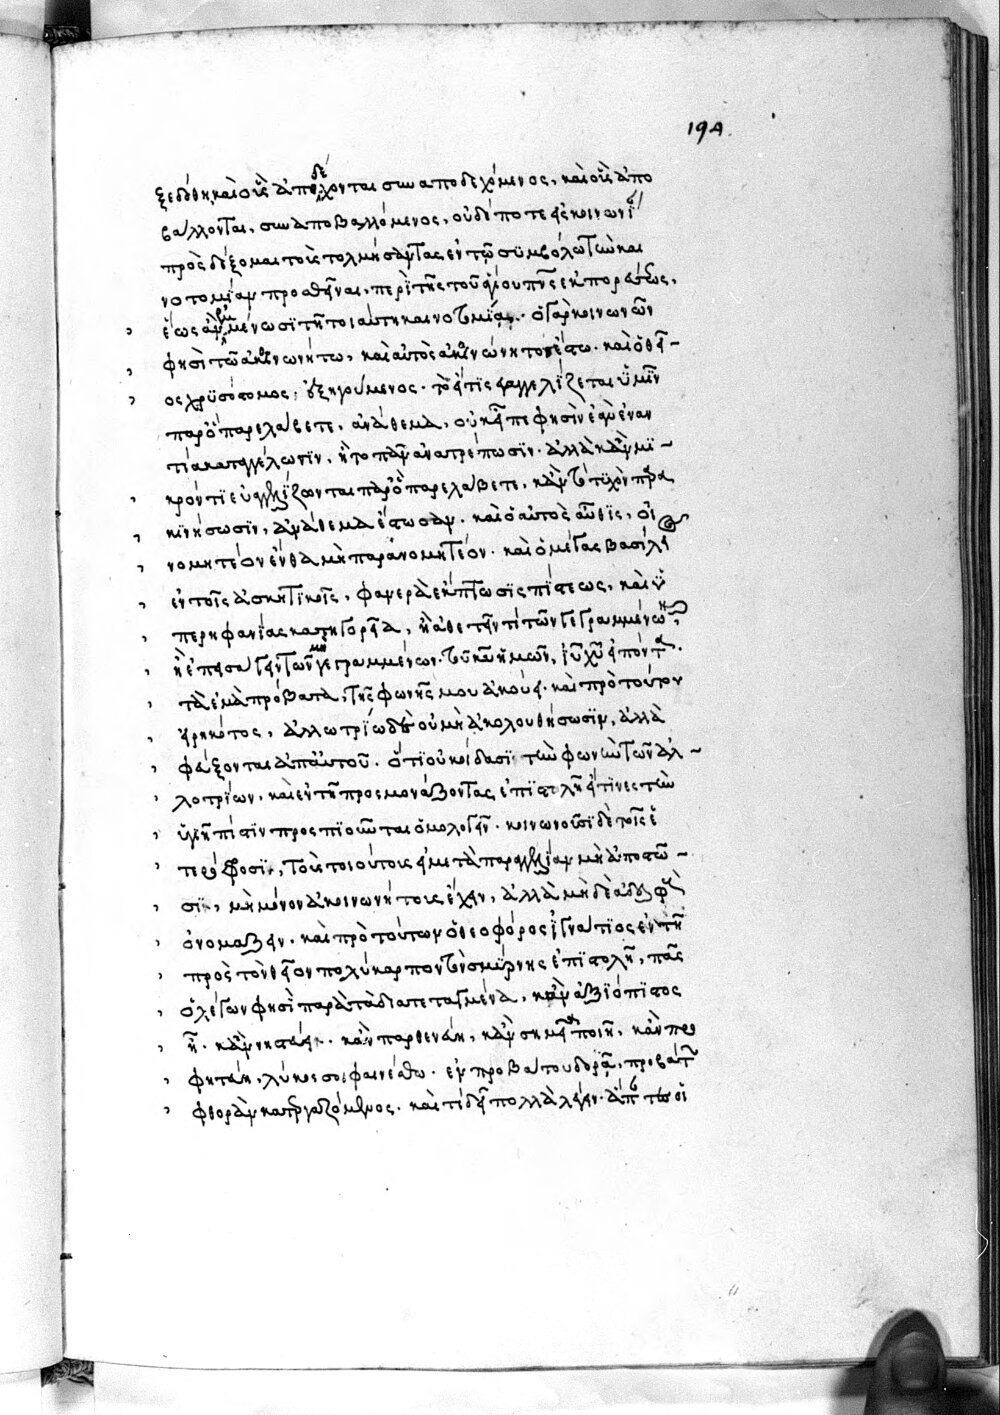 194
ξεδόθη καὶ οἷς ἀποδέχονται συναποδεχόμενος, καὶ οἷς ἀπο
βάλλονται, συναποβαλλόμενος, οὐδέποτε εἰς κοινωνί
προσδέξομαι τοὺς τολμήσαντας ἐν τῷ συμβόλῳ τὴν και
νοτομίαν προσθεῖναι, περὶ τῆς τοῦ ἁγίου πνς ἐκπορεύσεως,
ἕως ἂν ἐμμένωσι τῇ τοιαύτῃ καινοτομίᾳ. ὁ γὰρ κοινωνῶν
φησὶ τῷ ἀκοινωνήτῳ, καὶ αὐτὸς ἀκοινώνητος ἔστω. καὶ ὁ θεῖ-
ος χρυσόστομος, ἐξηγούμενος. τὸ εἴ τις εὐαγγελίζεται ὑμῖν
παρ' ὃ παρελάβετε, ἀνάθεμα, οὐκ εἶπε φησὶν ἐὰν ἐναν
τία καταγγέλωσιν, ἢ τὸ πᾶν ἀνατρέπωσιν. ἀλλὰ κἂν μι-
κρόν τι εὐαγγελίζωνται παρ' ὃ παρελάβετε, κἂν τὸ τυχὸν παρα
κινήσωσιν, ἀνάθεμα ἔστωσαν. καὶ ὁ αὐτὸς αὖθις, οἰ
νομητέον ἔνθα μὴ παρανομητέον. καὶ ὁ μέγας βασίλει
ἐν τοῖς ἀσκητικοῖς, φανερὰ ἔκπτωσις πίστεως, καὶ ὑ
περηφανίας κατηγορία, ἢ ἀθετεῖν τι τῶν γεγραμμένων,
ἢ ἐπεισάγειν τῶν μὴ γεγραμμένων. τοῦ κυ ἡμῶν, ιυ χυ εἰπόντ.
τὰ ἐμὰ πρόβατα, τῆς φωνῆς μου ἀκούει. καὶ πρὸ τούτου
εἰρηκότος, ἀλλοτρίῳ δὲ οὐ μὴ ἀκολουθήσωσιν, ἀλλὰ
φεύξονται ἀπ' αὐτοῦ. ὅτι οὐκ οἴδασι τὴν φωνὴν τῶν ἀλ-
λοτρίων. καὶ ἐν τῇ πρὸς μονάζοντας ἐπιστολῇ εἴ τινες τὴν
ὑγιῆ πίστιν προσποιοῦνται ὁμολογεῖν. κοινωνοῦσι δὲ τοῖς ἑ
τερόφροσι, τοὺς τοιούτους εἰ μετὰ παραγγελίαν μὴ ἀποστῶ-
σι, μὴ μόνον ἀκοινωνήτους ἔχειν, ἀλλὰ μηδὲ ἀδελφοὺς
ὀνομάζειν. καὶ πρὸ τούτων ὁ θεοφόρος ἰγνάτιος ἐν τῇ
πρὸς τὸν θεῖον πολύκαρπον τὸν σμύρνης ἐπιστολῇ, πᾶς
ὁ λέγων φησὶ παρὰ τὰ διατεταγμένα, κἂν ἀξιόπιστος
ᾖ. κἂν νηστεύῃ. κἂν παρθενεύῃ, κἂν σημεῖα ποιῇ, κἂν προ
φητεύῃ, λύκος σοι φαινέσθω. ἐν προβάτου δορᾷ, προβάτων
φθορὰν κατεργαζόμενος. καὶ τί δεῖ πολλὰ λέγειν. ἅπαντες οἱ